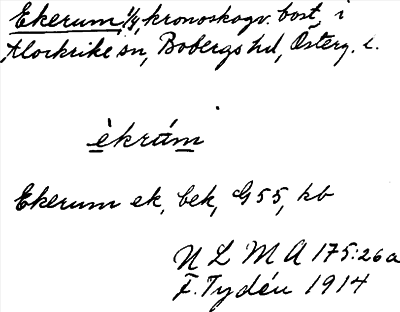 Ekerum, 1/4, kronoskogv. bost, i
Klockrike sn, Bobergs hd, Österg. l.
èkrúm
Ekerum ek, bek, G 55, kb
N L M A 175:26a
F. Tydén 1914